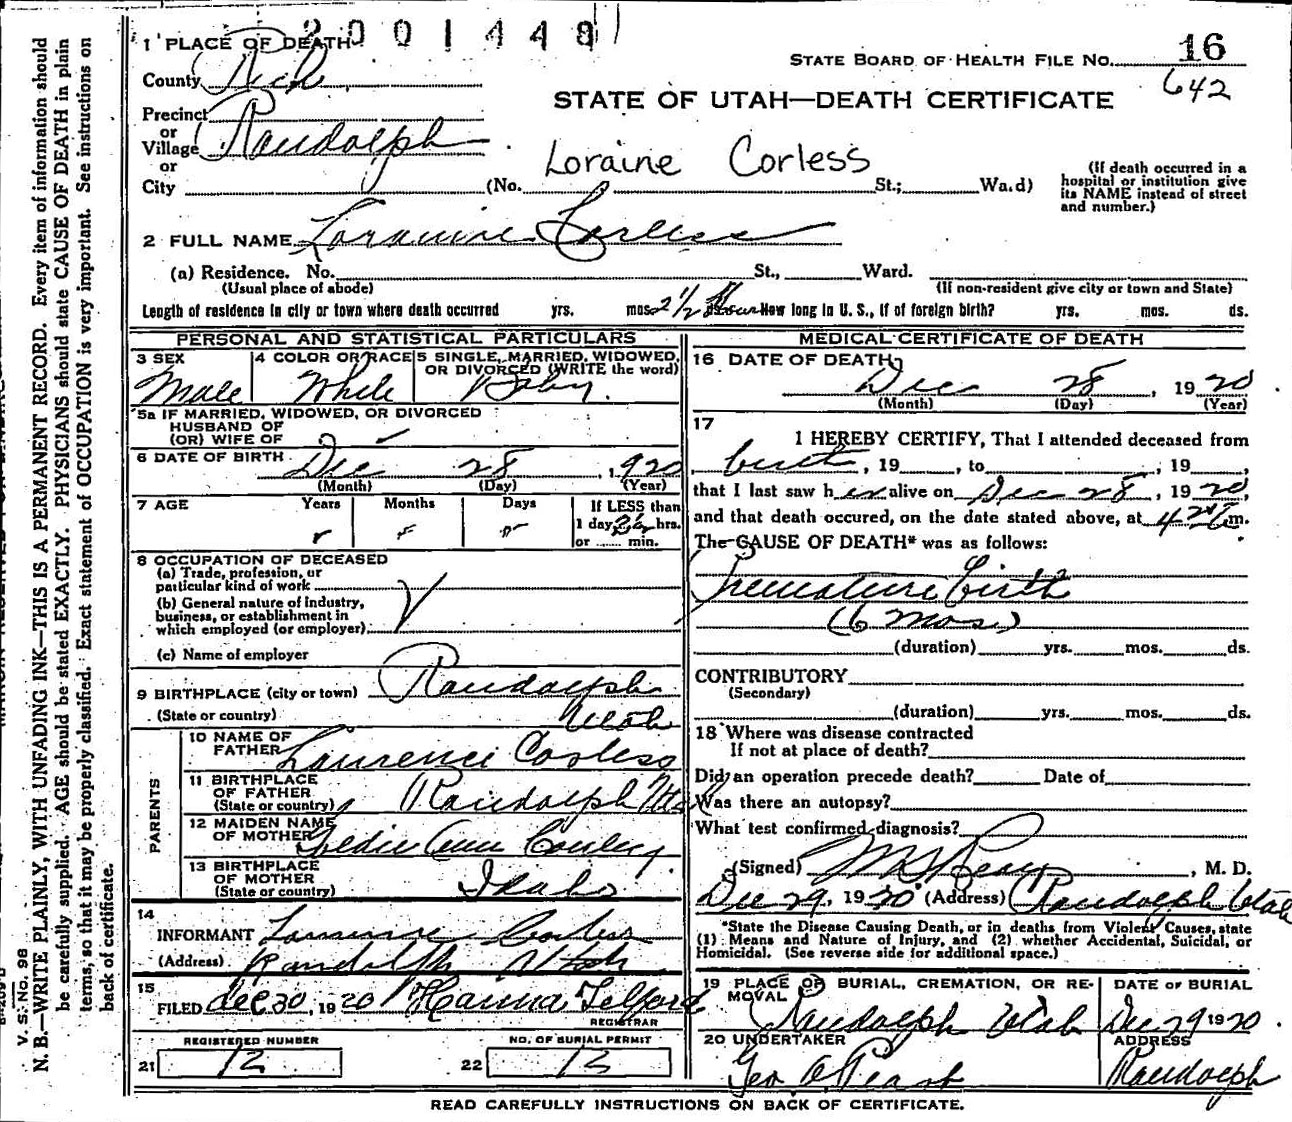 2001448
1 PLACE OF DEATH
STATE BOARD OF HEALTH FILE NO. 16
642
County Rich
STATE OF UTAH—DEATH CERTIFICATE
Precinct
or
Village Randolph
or
Loraine Corless
City (No. St.; Ward)
(If death occurred in a
hospital or institution give
its NAME instead of street
and number.)
2 FULL NAME Loraine Corless
(a) Residence. No. St., Ward.
(Usual place of abode) (If non-resident give city or town and State)
Length of residence in city or town where death occurred yrs. mos. 2½ How long in U. S., if of foreign birth? yrs. mos. ds.
PERSONAL AND STATISTICAL PARTICULARS
3 SEX Male
4 COLOR OR RACE White
5 SINGLE, MARRIED, WIDOWED,
OR DIVORCED (WRITE the word)
Baby.
5a IF MARRIED, WIDOWED, OR DIVORCED
HUSBAND OF
(OR) WIFE OF
6 DATE OF BIRTH Dec 28, 1920
(Month) (Day) (Year)
7 AGE Years Months Days If LESS than
1 day hrs.
or min.
8 OCCUPATION OF DECEASED
(a) Trade, profession, or
particular kind of work
(b) General nature of industry,
business, or establishment in
which employed (or employer)
(c) Name of employer
9 BIRTHPLACE (city or town) Randolph
(State or country) Utah
PARENTS
10 NAME OF
FATHER Laurence Corless
11 BIRTHPLACE
OF FATHER
(State or country) Randolph Utah
12 MAIDEN NAME
OF MOTHER Goldie Ann
13 BIRTHPLACE
OF MOTHER
(State or country) Idaho
14
INFORMANT Laurence Corless
(Address) Randolph Utah
15
FILED Dec 30, 1920 Hanna Telford
REGISTRAR
REGISTERED NUMBER
21 12
NO. OF BURIAL PERMIT
22 12
MEDICAL CERTIFICATE OF DEATH
16 DATE OF DEATH
Dec 28, 1920
(Month) (Day) (Year)
17
I HEREBY CERTIFY, That I attended deceased from
birth, 19 , to , 19 ,
that I last saw h alive on Dec 28, 1920,
and that death occured, on the date stated above, at m.
The CAUSE OF DEATH* was as follows:
Premature birth
(6 mos.)
(duration) yrs. mos. ds.
CONTRIBUTORY
(Secondary)
(duration) yrs. mos. ds.
18 Where was disease contracted
If not at place of death?
Did an operation precede death? Date of
Was there an autopsy?
What test confirmed diagnosis?
(Signed) , M. D.
Dec 29, 1920 (Address) Randolph Utah
*State the Disease Causing Death, or in deaths from Violent Causes, state
(1) Means and Nature of Injury, and (2) whether Accidental, Suicidal, or
Homicidal. (See reverse side for additional space.)
19 PLACE OF BURIAL, CREMATION, OR RE-
MOVAL
Randolph Utah
DATE OF BURIAL
Dec 29 1920
20 UNDERTAKER
Geo A Peart
ADDRESS
Randolph
READ CAREFULLY INSTRUCTIONS ON BACK OF CERTIFICATE.
V. S. No. 98
N. B.—WRITE PLAINLY, WITH UNFADING INK—THIS IS A PERMANENT RECORD. Every item of information should
be carefully supplied. AGE should be stated EXACTLY. PHYSICIANS should state CAUSE OF DEATH in plain
terms, so that it may be properly classified. Exact statement of OCCUPATION is very important. See instructions on
back of certificate.